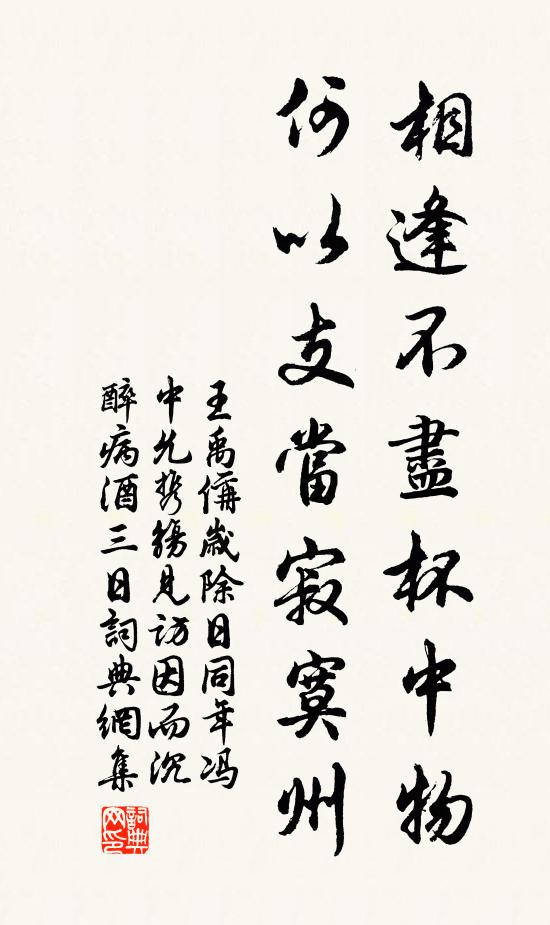 相逢不盡杯中物
何以支當寂寞州
王禹偁歲除日同年馮
中允攜觴見訪因而沉
醉病酒三日詞典網集
詞典网印